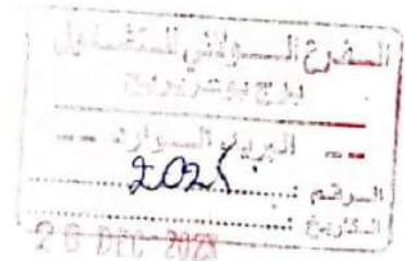 الفرع الولائي للتشغيل
برج بوعريريج
-- البريد الوارد --
الرقم :
التاريخ :
26 DEC